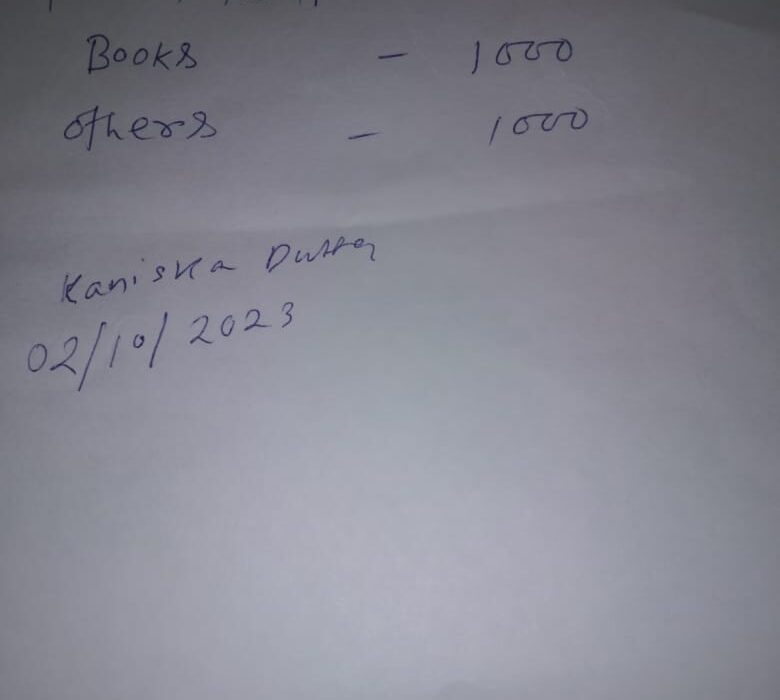 Books - 1000
others - 1000
Kaniska Dutta
02/10/2023